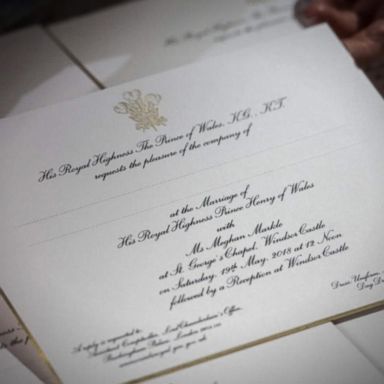 His Royal Highness The Prince of Wales, KG., KT.
requests the pleasure of the company of
at the Marriage of
His Royal Highness Prince Henry of Wales
with
Ms Meghan Markle
at St George's Chapel, Windsor Castle
on Saturday, 19th May, 2018 at 12 Noon
followed by a Reception at Windsor Castle
A reply is requested to:
Assistant Comptroller, Lord Chamberlain's Office,
Buckingham Palace, London
Dress: Uniform,
Day